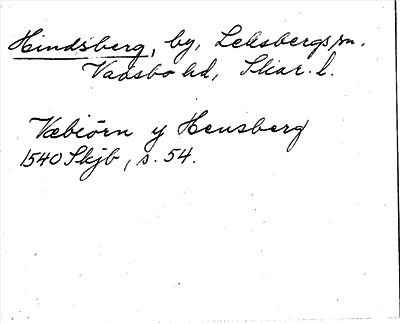 Hindsberg, by, Leksbergs sn.
Vadsbo hd, Skar. l.
Væbiörn y Hensberg
1540 Skjb, s. 54.